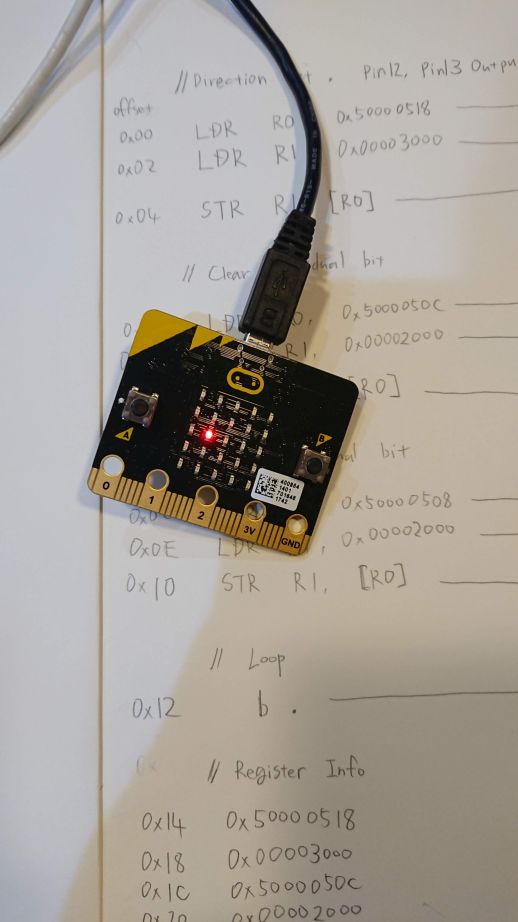 // Direction . Pin12, Pin13 Outpu
offset
0x00 LDR R0 0x50000518
0x02 LDR R1 0x00003000
0x04 STR R1 [R0]
// Clear dual bit
LDR R0, 0x5000050C
R1, 0x00002000
[R0]
bit
0x50000508
0x0E LDR , 0x00002000
0x10 STR R1, [R0]
// Loop
0x12 b .
// Register Info
0x14 0x50000518
0x18 0x00003000
0x1C 0x5000050C
0x20 0x00002000
A
B
0 1 2 3V GND
400864
1401
1742